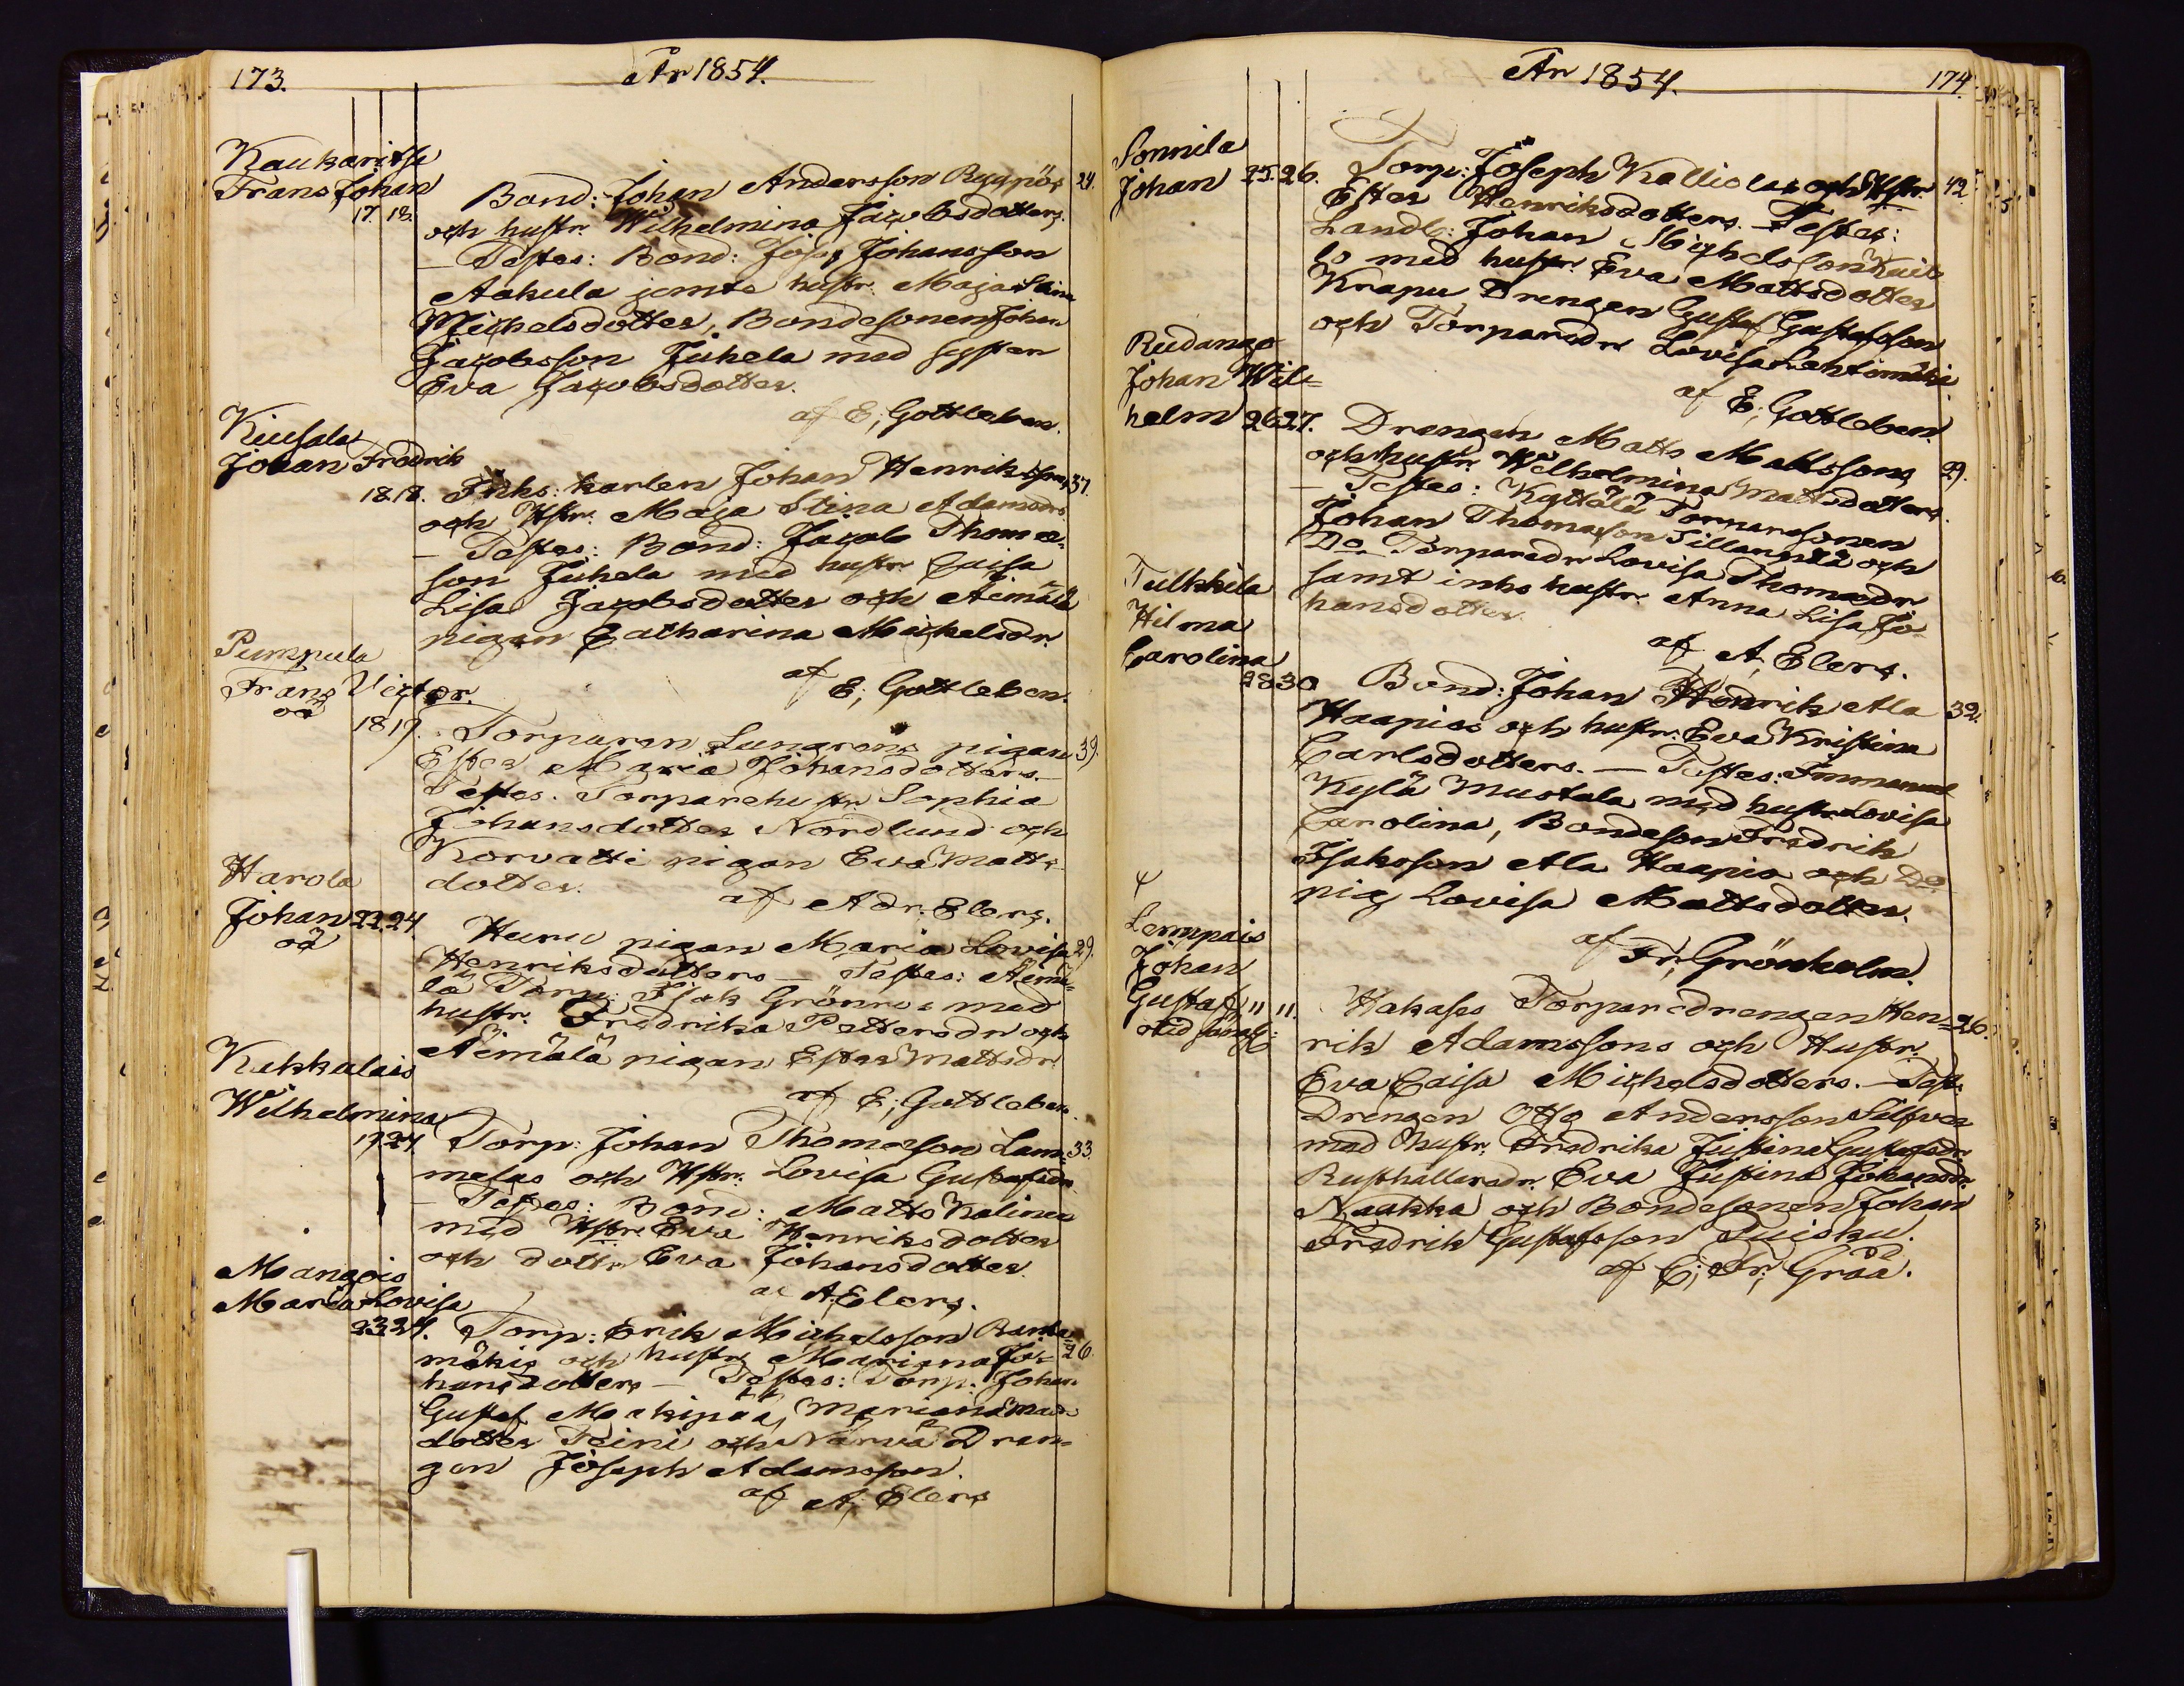 173.
År 1854.
Kaukaritsa
Frans Johan
17. 18.
Bond: Johan Andersson 24.
och hustr. Wilhelmina Jacobsdotters.
— Testes: Bond: Josep Johansson
Aakula jemte hustr. Maja Stina
Michelsdotter, Bondesonen Johan
Jacobsson Juhela med hustrun
Eva Jacobsdotter.
af E; Gottleben.
Kiusala
Johan Fredrik
18. 18. Inhs: karlen Johan Henrikssons 37.
och Hstr. Maja Stina Adamsdrs
— Testes: Bond: Jacob Thomas-
son Juhela med hustr Caisa
Lisa Jacobsdotter och Äimälä
pigan Catharina Michelsdr.
af E; Gottleben.
Pumpula
Frans Victor.
oä
18 19. Torparen Lungrens pigan 39.
Ester Maria Johansdotters.—
Testes. Torparehustr. Sophia
Johansdotter Nordlund och
Korvatti pigan Eva Matts-
dotter.
af Adr. Elers.
Harola
Johan 23. 24.
oä
Huru pigan Maria Lovisa 29.
Henriksdotters — Testes: Äimä-
lä Torp: Isak Grönroos med
hustr. Fredrika Pettersdr och
Äimälä pigan Ester Mattsdr.
af E; Gottleben.
Kukkulais
Wilhelmina
19. 24 Torp: Johan Thomasson Lam- 33.
melas och Hstr. Lovisa Gustafsdr
— Testes: Bond: Matts Kalinen
med Hstr. Eva Henriksdotter
och dottr. Eva Johansdotter.
af A; Elers.
Mangois
Maria Lovisa
23. 24. Torp: Erik Michelsson Ranta-
mäkis och hustr Mariana Jo- 26.
hansdotters — Testes: Torp: Johan
Gustaf Mäkipää, Mariana Matts
dotter Teini och Närvä Dren-
gen Joseph Adamsson.
af A; Elers
År 1854.
174.
Sonnila
Johan 25. 26. Torp: Joseph Kalliolas och Hstr. 42.
Ester Henriksdotters. — Testes:
Landb: Johan Michelsson
lo med hustr. Eva Mattsdotter
Krapu, Drengen Gustaf Gustafsson
och Torparedr Lovisa Lehtimäki.
af E; Gottleben.
Rudango
Johan Wil=
helm 26 27. Drengen Matts Mattssons 29.
och hustr. Wilhelmina Mattsdotters.
— Testes: Kyttälä Torparesonen
Johan Thomasson Tillanpää och
Do Torparedr Lovisa Thomasdr
samt inhs hustr. Anna Lisa Jo-
hansdotter.
af A; Elers.
Tulkkila
Hilma
Carolina
28 30 Bond: Johan Henrik Ala 32.
Haapios och hustr. Eva Kristina
Carlsdotters. — Testes: Immanuel
Kylä Mustala med hustr Lovisa
Carolina, Bondeson Fredrik
Isaksson Ala Haapio och Do
pig Lovisa Mattsdotter.
af Fr; Grönholm.
Lempais
Johan
Gustaf 11 11.
Hakases Torparedrengen Hen- 26.
rik Adamssons och Hustr.
Eva Caisa Michelsdotters. — Test:
Drengen Otto Andersson Silfver
med hustr. Fredrika Justina Gustafsdr.
Rusthållaredr. Eva Justina Johansdr.
Naukka och Bondesonen Johan
Fredrik Gustafsson Tuisku.
af C; Fr; Gråå.